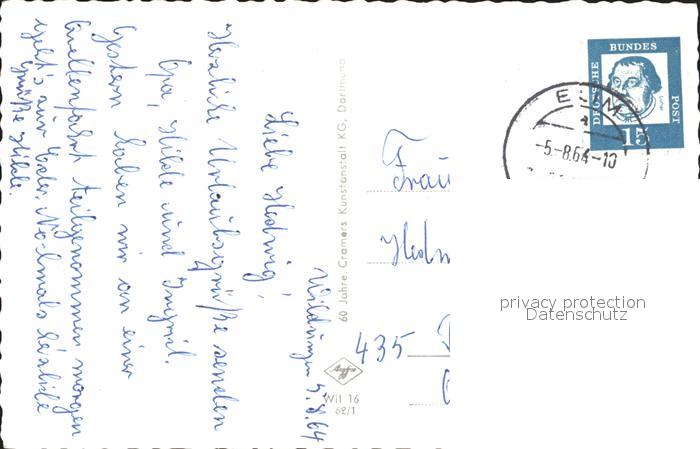 Wildungen 5.8.64
Liebe Hedwig!
Herzliche Urlaubsgrüße senden
Opa, Hilde und Ingrid.
Gestern haben wir an einer
Quellenfahrt teilgenommen morgen
geht's zur Eder. Nochmals herzliche
Grüße Hilde.
60 Jahre Cramers Kunstanstalt KG, Dortmund
Wil 16
62/1
Frau
Hedw
435
DEUTSCHE
BUNDES
POST
Luther
15
-5.-8.64-10
privacy protection
Datenschutz